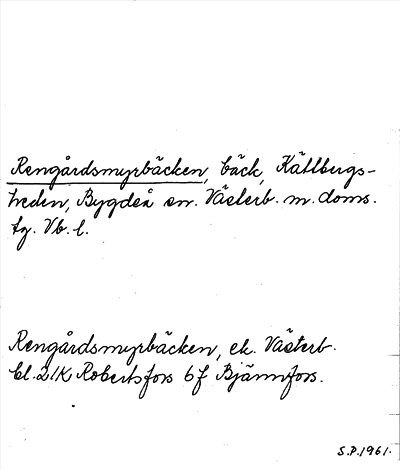 Rengårdsmyrbäcken, bäck, Källbergs-
heden, Bygdeå sn. Västerb. m. doms.
tg. Vb. l.
Rengårdsmyrbäcken, ek. Västerb.
bl. 21K Robertsfors 6f Bjännfors.
S.P. 1961.